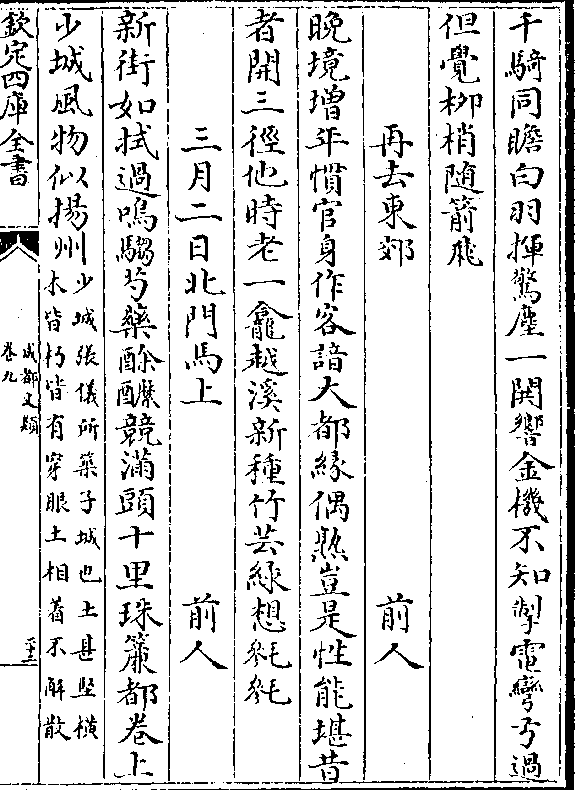 千騎同瞻白羽揮驚塵一鬨響金機不知掣電彎弓過
但覺栁梢隨箭飛
再去東郊　前人
晚境增年慣官身作客諳大都緣偶熟豈是性能堪昔
者開三徑他時老一龕越溪新種竹芸緑想毿毿
三月二日北門馬上　前人
新街如拭過鳴騶芍藥酴醾競滿頭十里珠簾都卷上
少城風物似揚州
少城張儀所築子城也土甚堅横
木皆朽皆有穿眼土相著不解散
欽定四庫全書
成都文類
卷九